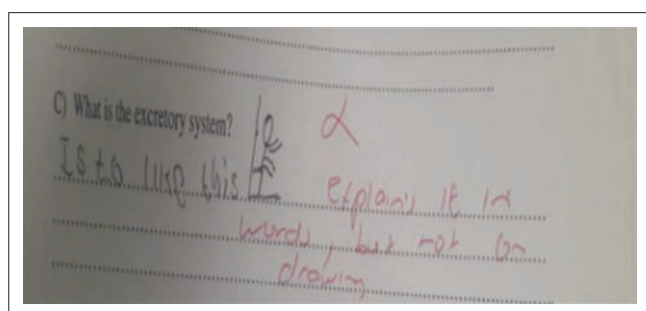 C) What is the excretory system?
Is to like this
explains it in
words, but not on
drawing